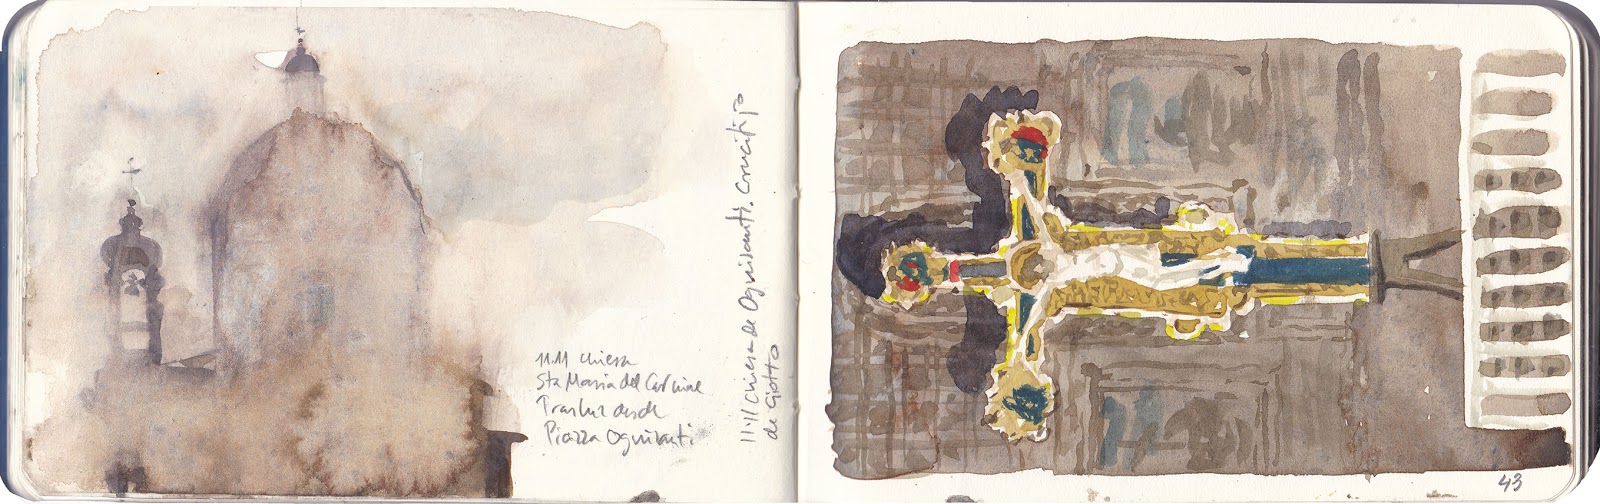 11.11 chiesa
Sta Maria del Carmine
Trasluz desde
Piazza Ognisanti
11.11 Chiesa de Ognissanti. Crucifijo
de Giotto
43